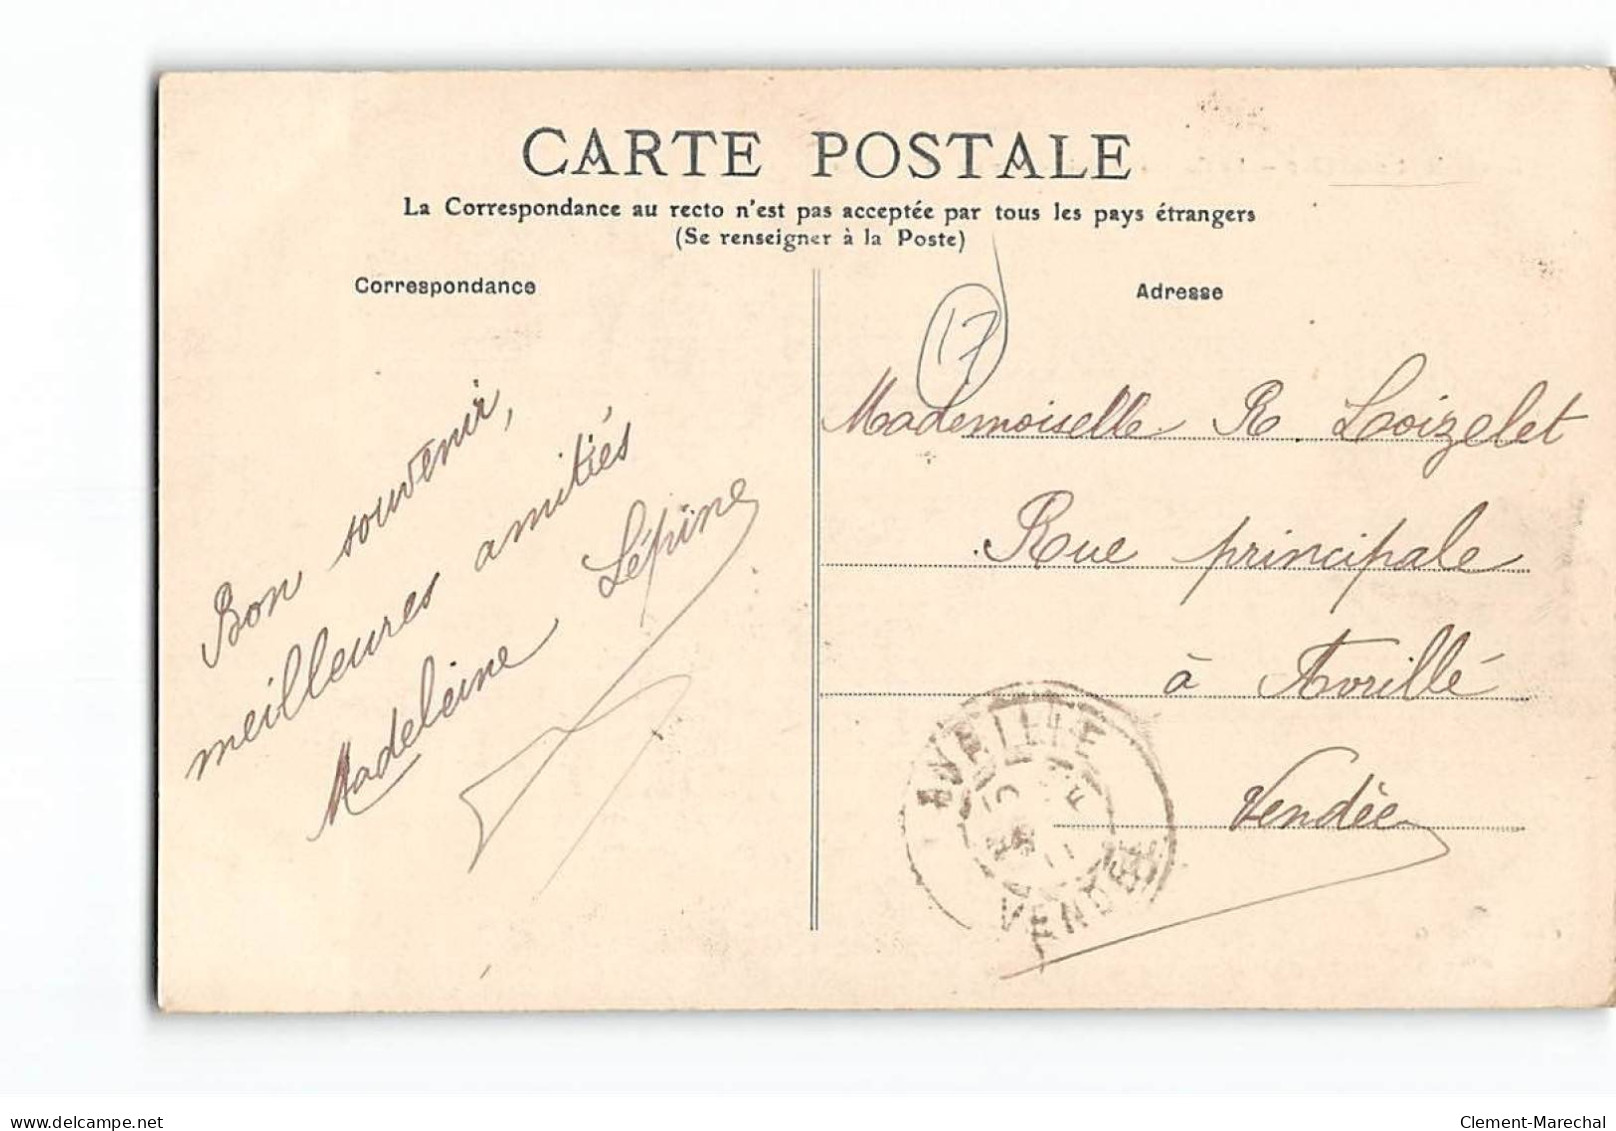 CARTE POSTALE
La Correspondance au recto n'est pas acceptée par tous les pays étrangers
(Se renseigner à la Poste)
Correspondance
Adresse
17
Bon souvenir,
meilleures amitiés
Madeleine Lépine
Mademoiselle R. Loizelet
Rue principale
à Avrillé
Vendée
AVRILLÉ
VENDÉE
delcampe.net
Clement-Marechal